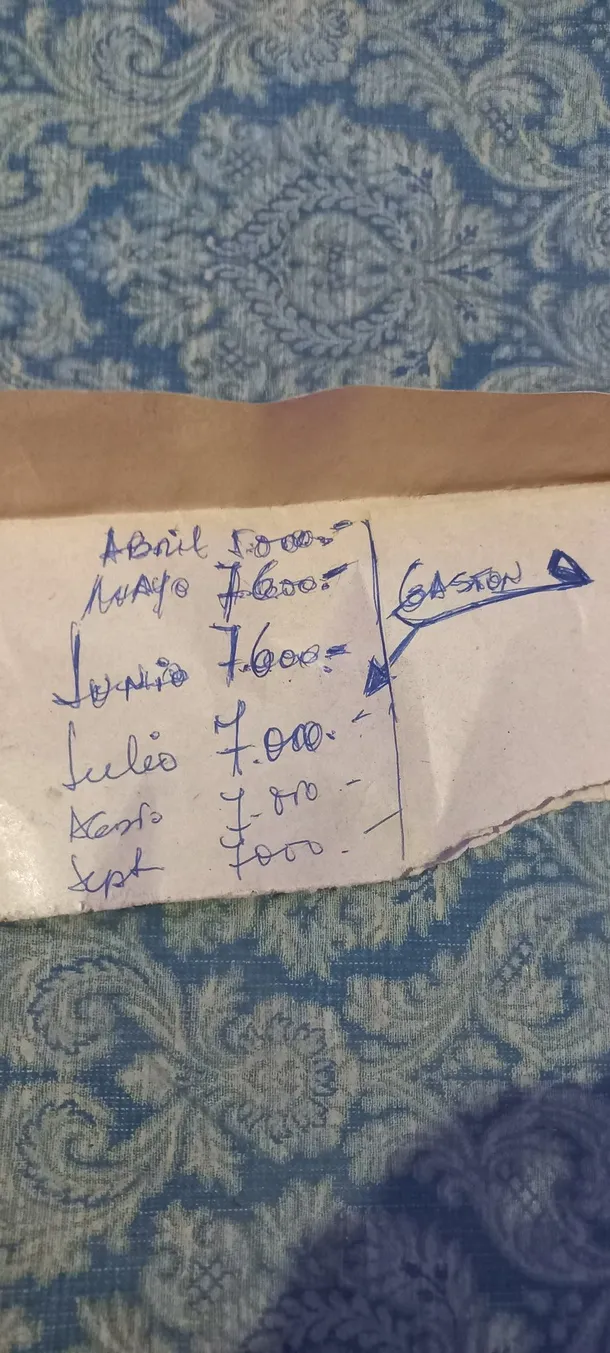 Abril 5.000.-
Mayo 7.600.-
GASTON
Junio 7.600.-
Julio 7.000.-
Agosto 7.000.-
Sept 7000.-